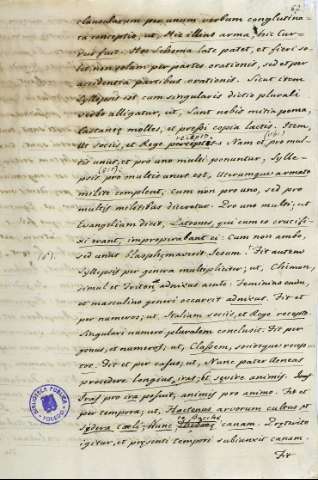 67
clausularum per unum verbum conglutina-
ta conceptio, ut, Hic illius arma, hic Cur-
rus fuit. Hoc Schema late patet, et fieri so-
let non solum per partes orationis, sed et per
accidentia partibus orationis. Sicut item
Syllepsis est cum singularis dictio plurali
verbo alligatur, ut, Sunt nobis mitia poma,
Castaneæ molles, et pressi copia lactis. Item,
Ut sociis, et Rege recepto. Nam et pro mul-
tis unus, et pro uno multi ponuntur, Sylle-
psis pro multis unus est, Uterumque armato
milite complent, cum non pro uno, sed pro
multis militibus diceretur. Pro uno multi, ut
Evangelium dicit, Latrones, qui cum eo crucifi-
xi erant, improperabant ei: Cum non ambo,
sed unus blasphemaverit Jesum. Fit autem
Syllepsis per genera multipliciter; ut,
simul et adnixus acuto. Feminino
et masculino generi occurrit adnixus. Fit et
per numeros; ut, Italiam sociis, et Rege recepto
Singulari numero pluralem conclusit. Fit per
genus, et numeros; ut, Classem, sociosque recep-
tos. Fit et per casus, ut, Nunc pater Aeneas
procedere longius iras, et sævire animis.
Iras pro ira posuit, animis pro animo. Fit et
per tempora; ut, Hactenus arvorum cultus et
sydera cœli; Nunc te Bacche canam. Præterito
igitur, et præsenti tempori subiunxit canam.
Fit
BIBLIOTECA PUBLICA
TOLEDO